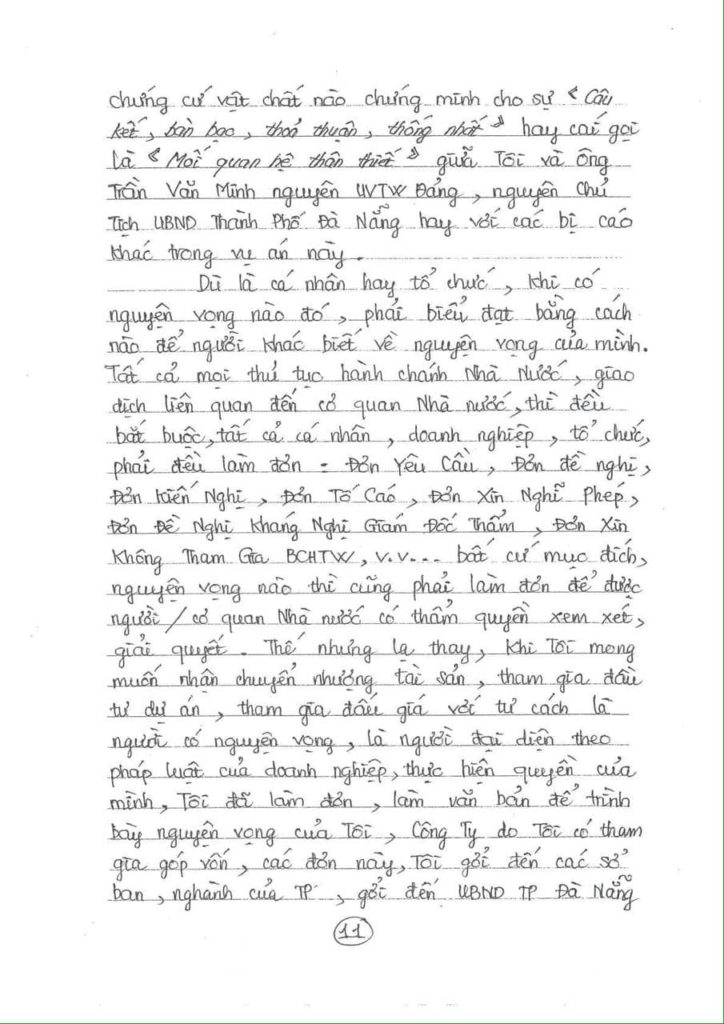 chứng cứ vật chất nào chứng minh cho sự "Câu
kết, bàn bạc, thoả thuận, thống nhất" hay cái gọi
là "Mối quan hệ thân thiết" giữa Tôi và ông
Trần Văn Minh nguyên UVTW Đảng, nguyên Chủ
Tịch UBND Thành Phố Đà Nẵng hay với các bị cáo
khác trong vụ án này.
Dù là cá nhân hay tổ chức, khi có
nguyện vọng nào đó, phải biểu đạt bằng cách
nào để người khác biết về nguyện vọng của mình.
Tất cả mọi thủ tục hành chánh Nhà Nước, giao
dịch liên quan đến cơ quan Nhà nước, thì đều
bắt buộc, tất cả cá nhân, doanh nghiệp, tổ chức,
phải đều làm đơn = Đơn Yêu Cầu, Đơn đề nghị,
Đơn Kiến Nghị, Đơn Tố Cáo, Đơn Xin Nghĩ Phép,
Đơn Đề Nghị Kháng Nghị Giám Đốc Thẩm, Đơn Xin
Không Tham Gia BCHTW, v.v... bất cứ mục đích,
nguyện vọng nào thì cũng phải làm đơn để được
người / cơ quan Nhà nước có thẩm quyền xem xét,
giải quyết. Thế nhưng lạ thay, khi Tôi mong
muốn nhận chuyển nhượng tài sản, tham gia đầu
tư dự án, tham gia đấu giá với tư cách là
người có nguyện vọng, là người đại diện theo
pháp luật của doanh nghiệp, thực hiện quyền của
mình, Tôi đã làm đơn, làm văn bản để trình
bày nguyện vọng của Tôi, Công Ty do Tôi có tham
gia góp vốn, các đơn này, Tôi gởi đến các sở
ban, nghành của TP, gởi đến UBND TP Đà Nẵng
11